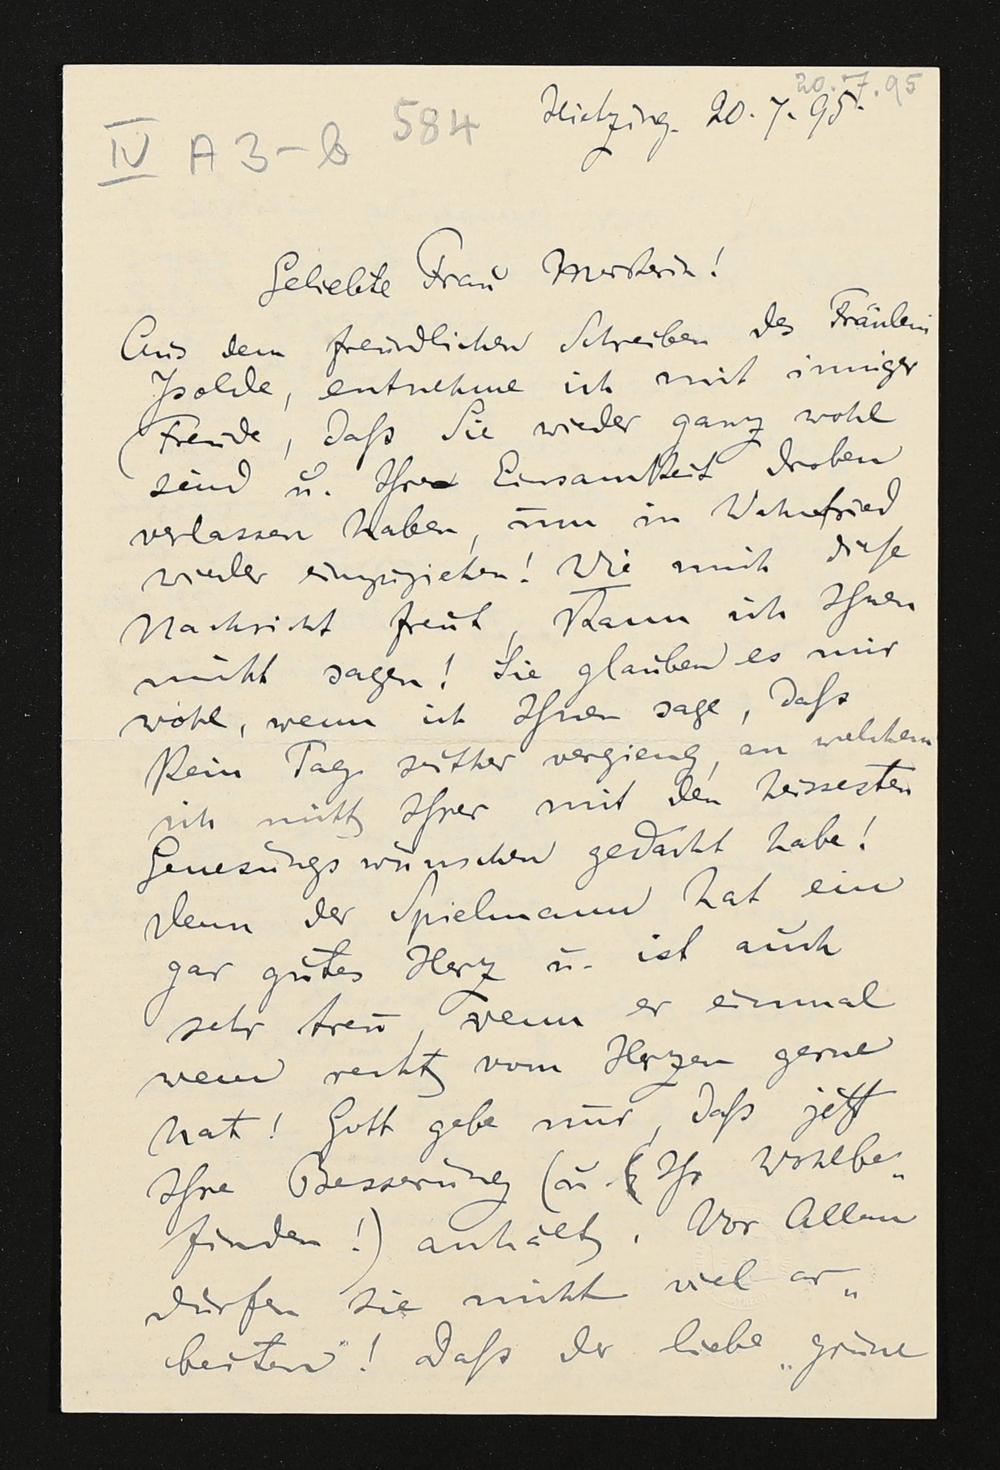 20.7.95
IV A 3-6 584
Hietzing. 20. 7. 95.
Geliebte Frau Meisterin!
Aus dem freundlichen Schreiben des Fräulein
Isolde, entnehme ich mit inniger
Freude, daß Sie wieder ganz wohl
sind u. Ihre Einsamkeit droben
verlassen haben, um in Wahnfried
wieder einzuziehen! Wie mich diese
Nachricht freut, kann ich Ihnen
nicht sagen! Sie glauben es mir
wohl, wenn ich Ihnen sage, daß
kein Tag seither vergieng, an welchem
ich nicht Ihrer mit den heissesten
Genesungswünschen gedacht habe!
Denn der Spielmann hat ein
gar gutes Herz u. ist auch
sehr treu, wenn er einmal
wem recht vom Herzen gerne
hat! Gott gebe nur, daß jetzt
Ihre Besserung (u. Ihr Wohlbe„
finden!) anhält. Vor Allem
dürfen Sie nicht viel ar„
beiten! Daß der liebe „grüne